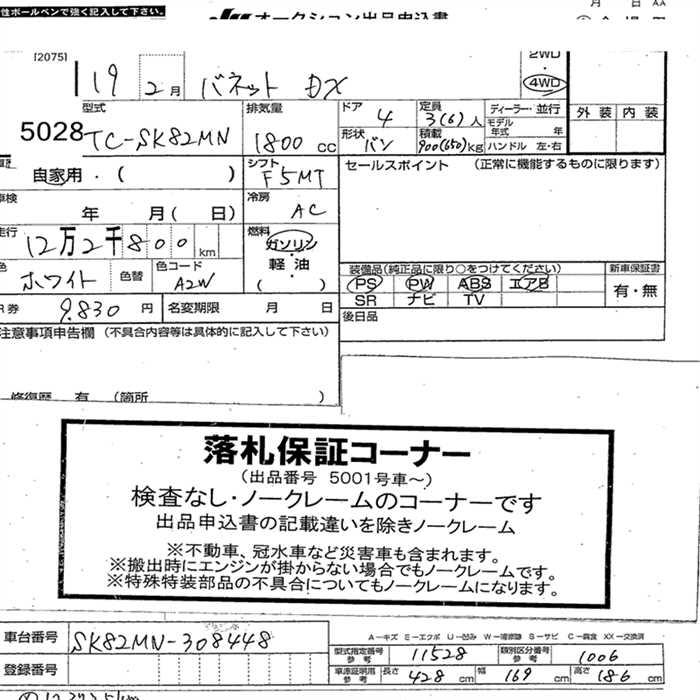 性ボールペンで強く記入して下さい。
オークション出品申込書
月 日 AA
[2075]
19 2月 バネット DX
2WD
・
4WD
外装 内装
型式 排気量 ドア 4 定員 3(6)人 ディーラー・並行
5028 TC-SK82MN 1800 cc モデル年式 年
形状 バン 積載 900(650)kg ハンドル 左・右
自家用・( )
シフト F5MT
セールスポイント (正常に機能するものに限ります)
車検 年 月( 日)
冷房 AC
走行 12万2千800km
燃料 ガソリン
軽油
( )
色 ホワイト 色替 色コード A2W
装備品(純正品に限り○をつけてください) 新車保証書
PS PW ABS エアB 有・無
SR ナビ TV
R券 9,830円 名変期限 月 日
後日品
注意事項申告欄 (不具合内容等は具体的に記入して下さい)
修復歴 有 (箇所 )
落札保証コーナー
(出品番号 5001号車~)
検査なし・ノークレームのコーナーです
出品申込書の記載違いを除きノークレーム
※不動車、冠水車など災害車も含まれます。
※搬出時にエンジンが掛からない場合でもノークレームです。
※特殊特装部品の不具合についてもノークレームになります。
車台番号 SK82MN-308448
A-キズ E-エクボ U-凹み W-補修跡 S-サビ C-腐食 XX-交換済
型式指定番号 参考 11528 類別区分番号 参考 1006
登録番号
車庫証明用 参考 長さ 428cm 幅 169cm 高さ 186cm